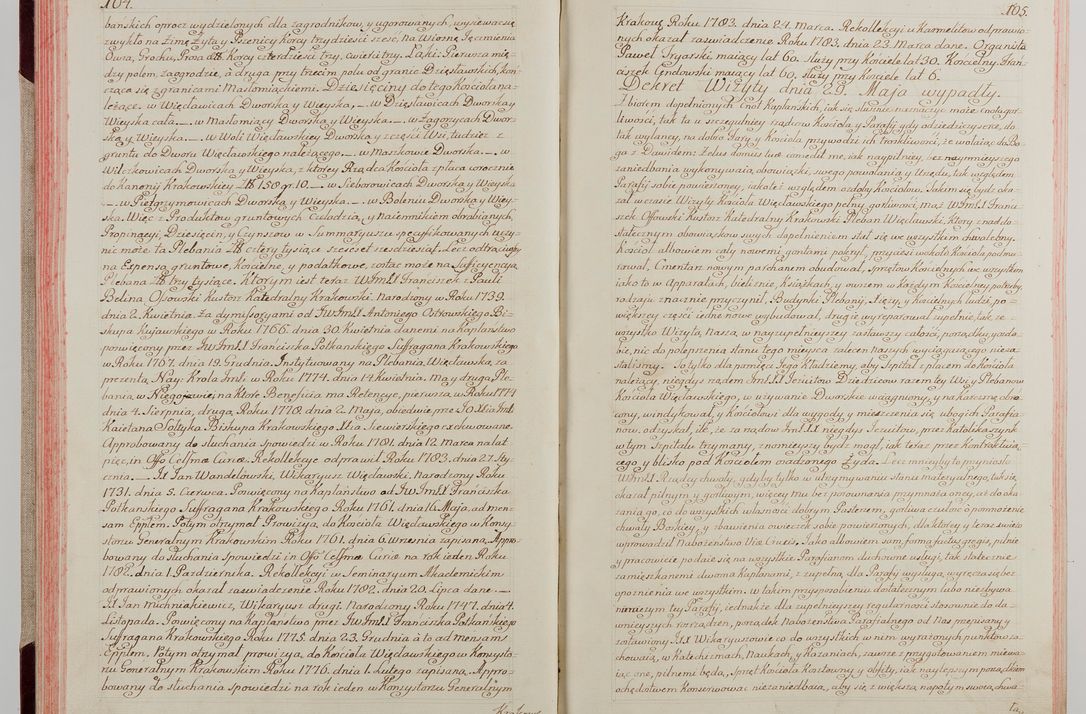 104.
bańskich oprocz wydzielonych dla zagrodnikow, y ugorowanych, wysiewac się
zwykło na Zimę Zyta y Pszenicy Korcy trydzieści szesc, na Wiosnę Jęczmienia
Owsa, Grochu, Prosa Korcy czterdzieści try, cwiertni try. Łąki: Pierwsza mię-
dzy polem zagrodzie, a druga przy trzecim polu od granic Dzięsławskich, koń-
czące się z granicami Masłomiąckiemi. Dziesięciny do tego Kościoła na-
leżące. w Więcławicach Dworska y Wieyska._ w Dzięsławicach Dworska y
Wieyska cała._ w Masłomiący Dworska y Wieyska._ w Zagorzycach Dwor-
ska y Wieyska._ w Woli Więcławskiey Dworska y częśći Wsi, tudziez z
gruntu do Dworu Więcławskiego należącego._ w Maszkowie Dworska._ w
Wilczkowicach Dworska y Wieyska, z ktorey Rządca Kościoła zpłaca corocznie
do Kanonij Krakowskiey 158 gr. 10._ w Sieborowicach Dworska y Wieyska
._ w Pielgrzymowicach Dworska y Wieyska._ w Boleniu Dworska y Wiey-
ska. Więc z Produktow gruntowych Czeladzią, y naiemnikiem obrabianych,
Propinacyi, Dziesięcin, y Czynszow w Summaryuszu specyfikowanych uczy-
nic może ta Plebania cztery tysiące szescset szesdziesiąt. Lecz odtrąciwszy
na Expensa gruntowe, Kościelne, y podatkowe, zostac może na Sufficyencyą
Plebana try tysiące. Ktorym iest teraz WJmXJ Franciszek z Pauli
Belina Ossowski Kustos Katedralny Krakowski. Narodzony w Roku 1739.
dnia 2. Kwietnia. Za dymissoryami od JWJmXJ Antoniego Ostrowskiego Bi-
skupa Kujawskiego w Roku 1766. dnia 30. Kwietnia danemi na Kapłanstwo
poswięcony przez JWJmXJ Franciszka Potkanskiego Suffragana Krakowskiego
w Roku 1767. dnia 19. Grudnia. Instytuowany na Plebanią Więcławską za
prezentą Nay: Krola Jmśi. w Roku 1774. dnia 14. Kwietnia. Ma y drugą Ple-
banią w Niegojowicy, na ktore Beneficia ma Retencye, pierwszą w Roku 1774
dnia 4. Sierpnia, drugą Roku 1778. dnia 2. Maja, obiedwie przez JO. Xcia Jmśi
Kaietana Sołtyka Biskupa Krakowskiego Xcia Siewierskiego rezerwowane.
Approbowany do słuchania spowiedzi w Roku 1781. dnia 12. Marca na lat
pięc, in Offo Celsmæ Curiæ. Rekollekcye odprawił Roku 1783. dnia 27. Sty-
cznia._ XJ Jan Wandelowski, Wikaryusz Więcławski, Narodzony Roku
1731. dnia 5. Czerwca. Poswięcony na Kapłaństwo od JWJmXJ Franciszka
Potkanskiego Suffragana Krakowskiego Roku 1761. dnia 16. Maja, ad men-
sam Epplem. Potym otrzymał Prowizyą, do Kościoła Więcławskiego w Konsy-
storzu Generalnym Krakowskim Roku 1761. dnia 6. Wrzesnia zapisaną, Appro-
bowany do słuchania Spowiedzi in Offo Celsmæ Curiæ na rok ieden Roku
1782. dnia 1. Pazdziernika. Rekollekcyi w Seminaryum Akademickim
odprawionych okazał zaswiadczenie Roku 1782. dnia 20. Lipca dane._
XJ Jan Michniakiewicz, Wikaryusz drugi. Narodzony Roku 1747. dnia 4.
Listopada. Poswięcony na Kapłanstwo przez JWJmXJ Franciszka Potkańskiego
Suffragana Krakowskiego Roku 1775. dnia 23. Grudnia à to ad mensam
Epplem. Potym otrzymał prowizyą, do Kościoła Więcławskiego w Konsysto-
rzu Generalnym Krakowskim Roku 1776. dnia 1. Lutego zapisaną, Appro-
bowany do słuchania spowiedzi na rok ieden w Konsystorzu Generalnym
Krakows
105.
Krakows: Roku 1783. dnia 24. Marca. Rekollekcyi u Karmelitow odprawio-
nych okazał zaswiadczenie Roku 1783. dnia 23. Marca dane. Organista
Paweł Tryarski, maiący lat 60. służy przy Kościele lat 30. Kościelny Fran-
ciszek Gendowski maiący lat 60. służy przy Kościele lat 6.
Dekret Wizyty dnia 29. Maja wypadły.
Zbiorem dopełnionych Cnot Kapłanskich, iak się słusznie nazwac może cnota gor-
liwosci, tak ta u szczegulniey rządcow Kościoła y Parafij gdy odziedziczy serce, do
tak wylaney, na dobra Wiary y Kościoła przywodzi ich troskliwosci, że wołaiąc do Bo-
ga z Dawidem: Zelus domus tuæ comedit me, iak naypilniey, bez naymnieyszego
zaniedbania wykonywaią obowiązki, swego powołania y Urzędu, tak względem
Parafij sobie powierzoney, iako też względem ozdoby Kościołow. Jakim się bydz oka-
zał w czasie Wizyty Kościoła Więcławskiego pełny gorliwości mąż WJmXJ Franci-
szek Ossowski Kustosz Katedralny Krakowski Pleban Więcławski, ktory z nad do-
statecznym obowiązkow swych dopełnieniem stał się we wszystkim chwalebny.
Kościoł albowiem cały nowemi gontami pokrył, przyciesi wokoło Kościoła podmu-
rował, Cmentarz nowym parchanem obudował, sprzętow Kościelnych we wszystkim
iako to w Apparatach, bieliznie, Książkach, y owszem w każdym Kościelney potrzeby
rodzaju znacznie przyczynił, Budynki Plebanij, Xięży, y Kościelnych ludzi, po-
większey części iedne nowe wybudował, drugie wyreparował zupełnie, tak, że
wszystko Wizyta Nasza w nayzupełnieyszey zastawszy całości, porządku y ozdo-
bie, nic do polepszenia stanu tego mieysca zaleceń naszych wyciągaiącego nieza-
stalismy. To tylko dla pamięci Jego kładziemy, aby Szpital z placem do Kościoła
należący, niegdys rządem JmXJ Jezuitow Dziedzicow razem tey Wsi, y Plebanow
Kościoła Więcławskiego, w używanie Dworskie wciągniony, y na karczmę obro-
cony, windykował, y Kościołowi dla wygody, y mieszczenia się ubogich Parafia-
now, odzyskał, ile, że za rządow JmXX niegdys Jezuitow, przez Katolika szynk
w tym Szpitalu trzymany, znosnieyszy bydz mogł, iak teraz przez Kontraktuią-
cego y blisko pod Kościołem osadzonego Zyda. Lecz mnieyby to przyniosło
WJmXJ Rządcy chwały, gdyby tylko w utrzymywaniu stanu materyalnego, tak się
okazał pilnym y gorliwym, więcey mu bez porownania przymnaża oney, iż do oka-
zania go, co do wszystkich własności dobrym Pasterzem, gorliwa czułość o pomnożenie
chwały Boskiey, y zbawienia owieczek sobie powierzonych, dla ktorey y teraz swiezo
wprowadził nabożenstwo Viæ Crucis. Jako albowiem sam, forma factus gregis, pilnie
y pracowicie podaie się na wszystkie Parafianom duchowne usługi, tak statecznie
zamieszkanemi dwoma Kapłanami, zupełną, dla Parafij wysługą, wyręcza się bez
opoznienia we wszystkim. W takim przysposobieniu dostatecznym lubo niezbywa
ninieyszym tey Parafij, iednakże dla zupełnieyszey regularności stosownie do da-
wnieyszych rozrządzeń, porządek Nabożeństwa Parafialnego od Nas przepisany y
zostawiony: XX Wikaryuszowie co do wszystkich w nim wyrażonych punktow za-
chowaią, w Katechizmach, Naukach, y Kazaniach, zawsze z przygotowaniem miewa-
iąc one, pilnemi będą. Sprzęt Kościoła Kosztowny, y obfity, iak naylepszym porządkiem
ochędostwem konserwowac niezaniedbaią, aby się, z większą napotym swoią, chwa-
łą,